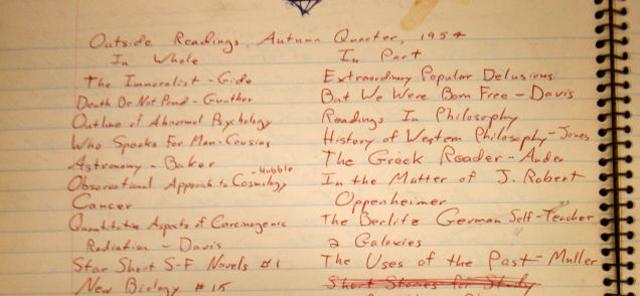 Outside Readings, Autumn Quarter, 1954
In Whole
The Immoralist - Gide
Death Be Not Proud - Gunther
Outline of Abnormal Psychology
Who Speaks For Man - Cousins
Astronomy - Baker
Observational Approach to Cosmology - Hubble
Cancer
Quantitative Aspects of Carcinogenic
Radiation - Davis
Star Short S-F Novels #1
New Biology # 15
In Part
Extraordinary Popular Delusions
But We Were Born Free - Davis
Readings In Philosophy
History of Western Philosophy - Jones
The Greek Reader - Auden
In the Matter of J. Robert
Oppenheimer
The Berlitz German Self-Teacher
2 Galaxies
The Uses of the Past - Muller
Short Stories for Study